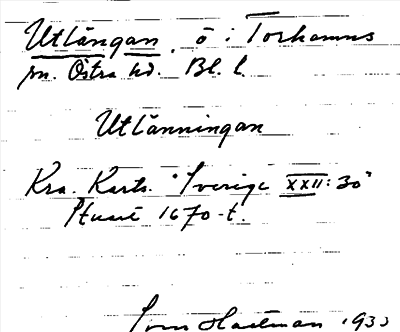 Utlängan, ö i Torhamns
sn. Östra hd. Bl. l.
Utlänningan
Kra. Kartv. "Sverige XXII:30"
1670-t.
Sven Hartman 1933